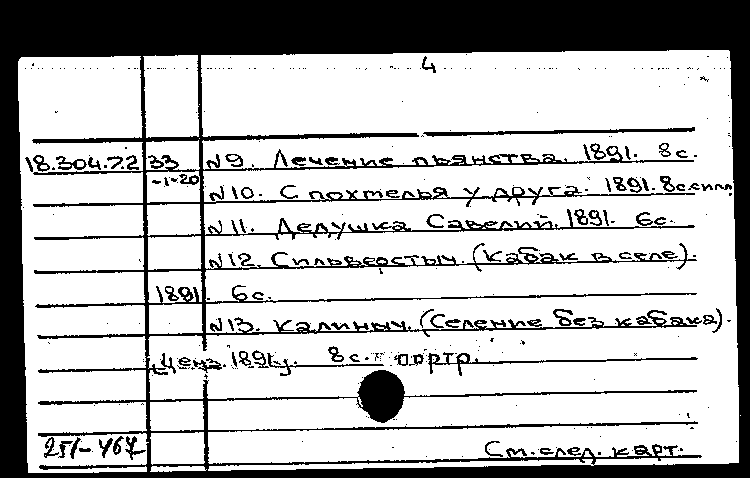 4
18.304.7.2 33 N9. Лечение пьянства. 1891. 8с.
-1-20 N10. С похмелья у друга. 1891. 8с. илл
N11. Дедушка Савелий. 1891. 6с.
N12. Сильверстыч. (Кабак в селе).
1891. 6с.
N13. Калиныч. (Селение без кабака).
[Ценз. 1891]. 8с. портр.
251-467 См. след. карт.